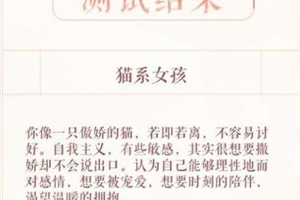 测试结果
猫系女孩
你像一只傲娇的猫，若即若离，不容易讨
好。自我主义，有些敏感，其实很想要撒
娇却不会说出口。认为自己能够理性地面
对感情，想要被宠爱，想要时刻的陪伴，
渴望温暖的拥抱